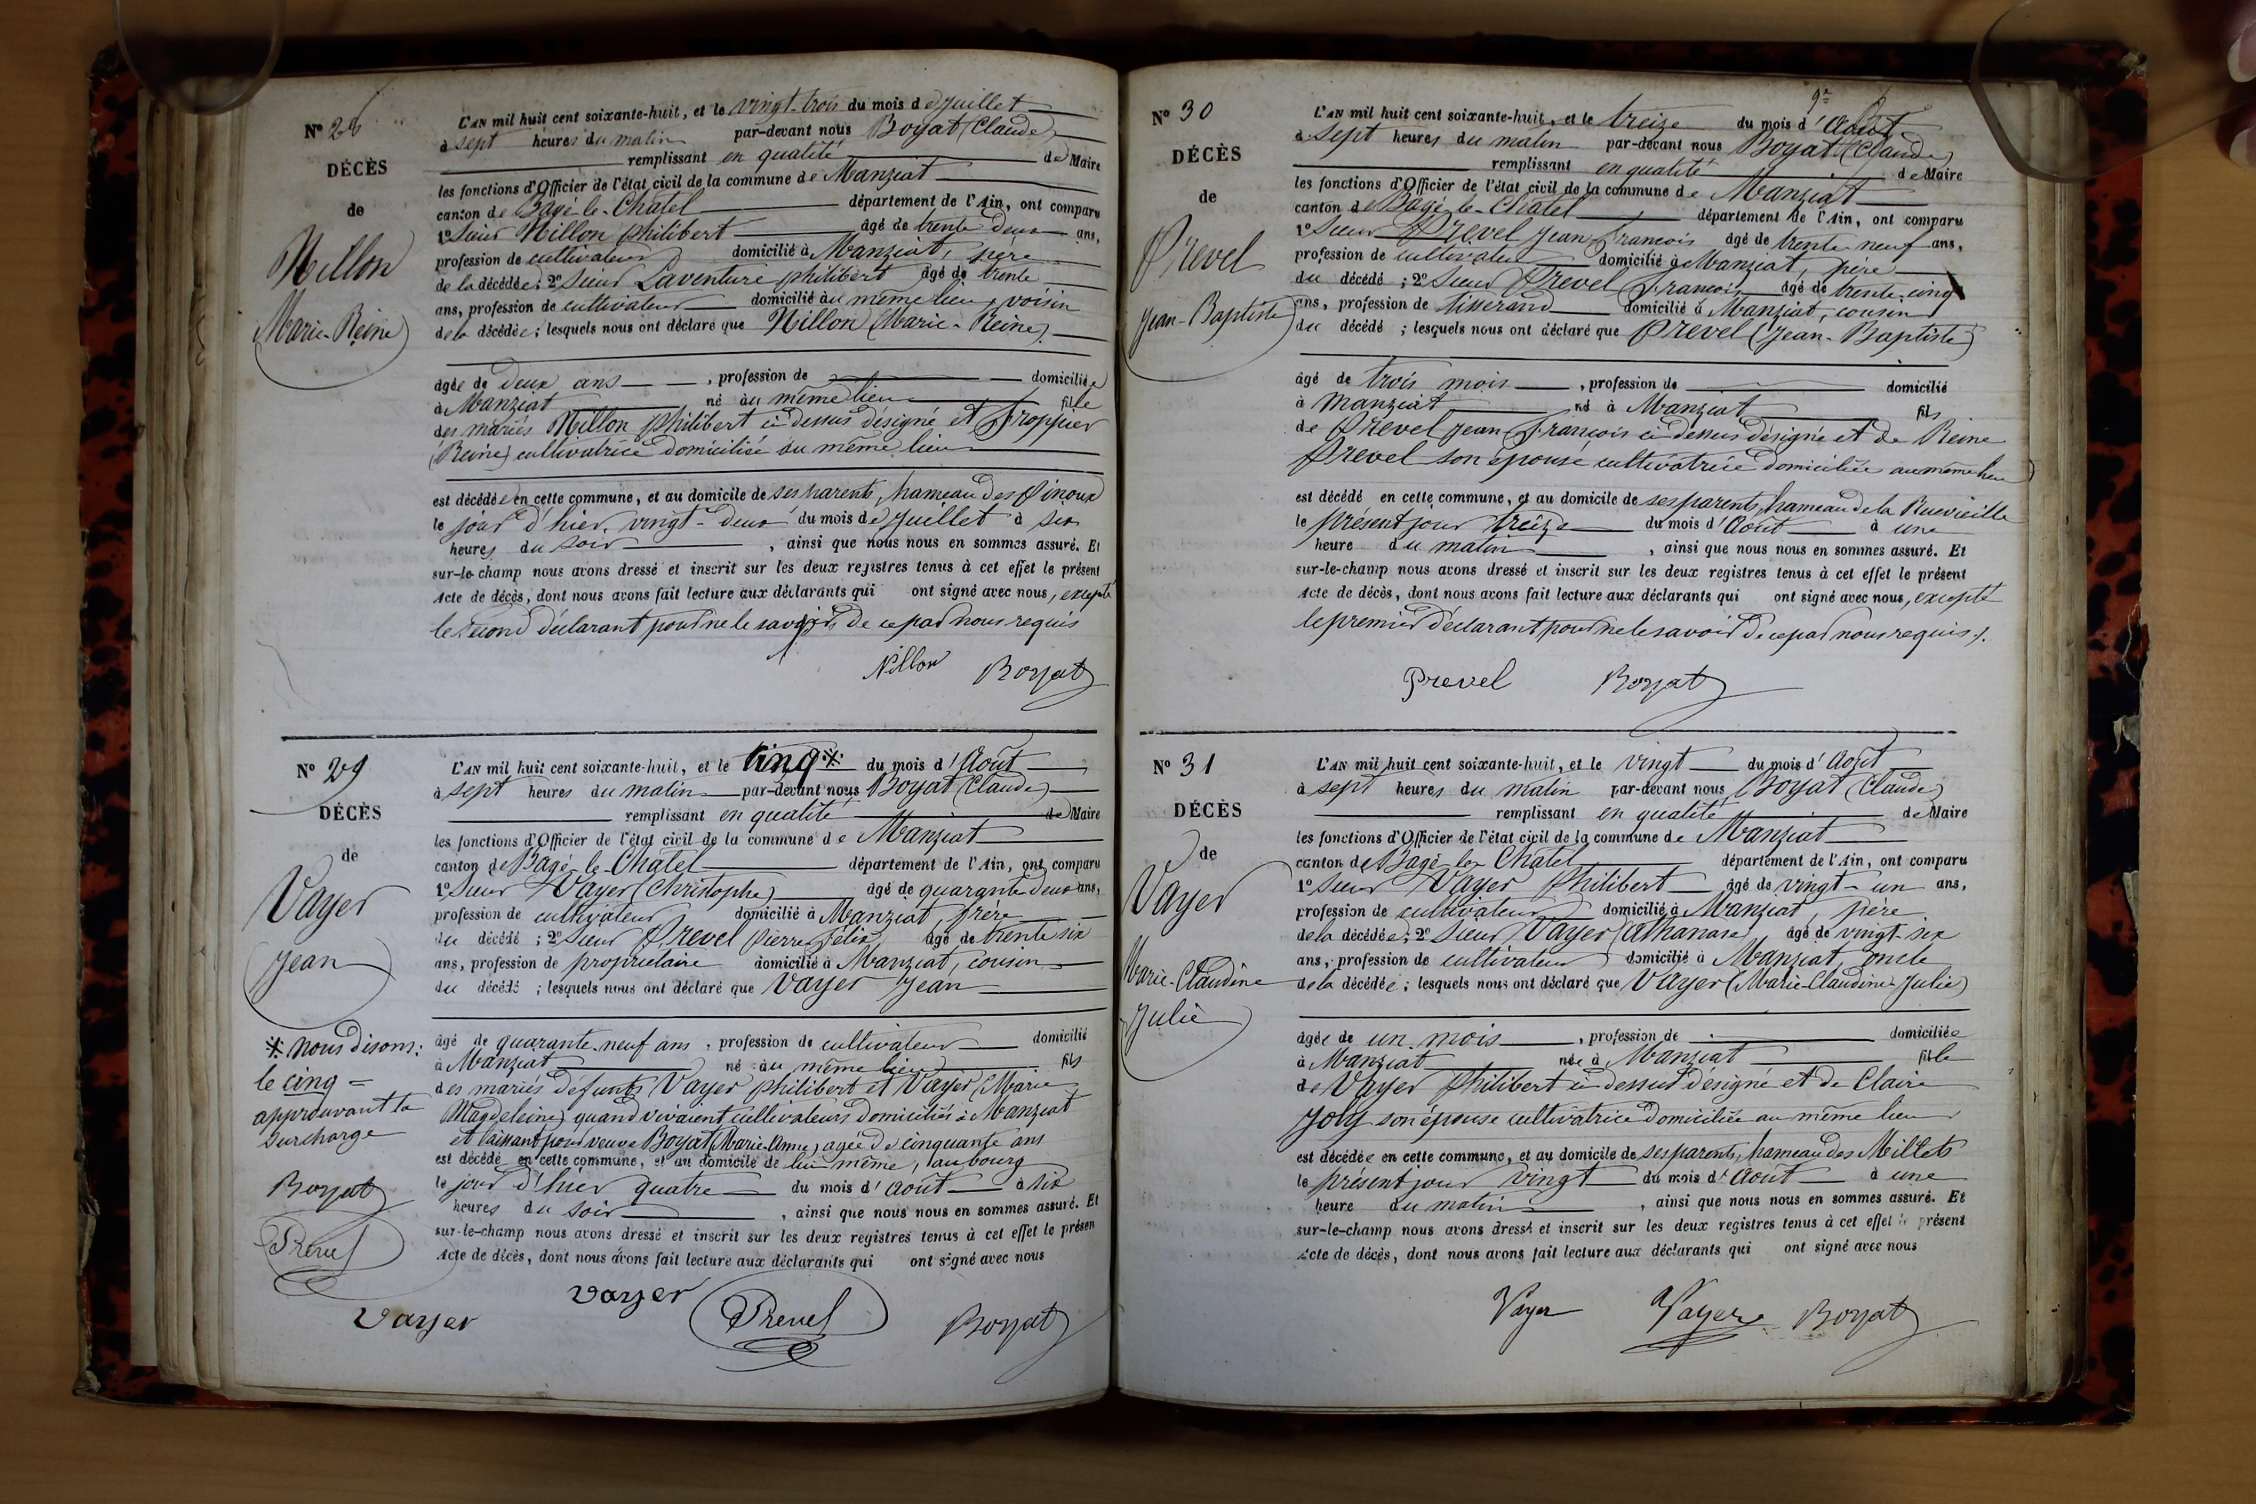 N° 28
DÉCÈS
de
Nillon
(Marie-Reine)
L'AN mil huit cent soixante-huit, et le vingt-trois du mois de juillet
à sept heures du matin par-devant nous Boyat (Claude)
remplissant en qualité de Maire
les fonctions d'Officier de l'état civil de la commune de Manziat
canton de Bagé-le-Chatel département de l'Ain, ont comparu
1° Sieur Nillon philibert âgé de trente deux ans,
profession de cultivateur domicilié à Manziat, père
de la décédée; 2° Sieur Laventure philibert âgé de trente
ans, profession de cultivateur domicilié au même lieu, voisin
de la décédée; lesquels nous ont déclaré que Nillon (Marie-Reine)
âgée de deux ans, profession de domiciliée
à Manziat né au même lieu fille
des mariés Nillon philibert ci dessus désigné et Froppier
(Reine) cultivatrice domicilié au même lieu
est décédée en cette commune, et au domicile de ses parents, hameau des Pinoux
le jour d'hier vingt-deux du mois de juillet à six
heures du soir, ainsi que nous nous en sommes assuré. Et
sur-le-champ nous avons dressé et inscrit sur les deux registres tenus à cet effet le présent
Acte de décès, dont nous avons fait lecture aux déclarants qui ont signé avec nous, excepté
le second déclarant pour ne le savoir, de ce par nous requis
Nillon Boyat
N° 29
DÉCÈS
de
Vayer
(Jean)
L'AN mil huit cent soixante-huit, et le cinq * du mois d'Août
à sept heures du matin par-devant nous Boyat (Claude)
remplissant en qualité de Maire
les fonctions d'Officier de l'état civil de la commune de Manziat
canton de Bagé-le-Chatel département de l'Ain, ont comparu
1° Sieur Vayer (Christophe) âgé de quarante deux ans,
profession de cultivateur domicilié à Manziat, frère
du décédé; 2° Sieur Prevel Pierre Félix âgé de trente six
ans, profession de propriétaire domicilié à Manziat, cousin
du décédé; lesquels nous ont déclaré que Vayer Jean
âgé de quarante neuf ans, profession de cultivateur domicilié
à Manziat né au même lieu fils
des mariés defunts Vayer philibert et Vayer (Marie
Magdeleine) quand vivaient cultivateurs domiciliés à Manziat
et laissant pour veuve Boyat (Marie-Anne) agée de cinquante ans
est décédé en cette commune, et au domicile de lui même, au bourg
le jour d'hier quatre du mois d'août à six
heures du soir, ainsi que nous nous en sommes assuré. Et
sur-le-champ nous avons dressé et inscrit sur les deux registres tenus à cet effet le présen
Acte de décès, dont nous avons fait lecture aux déclarants qui ont signé avec nous
* nous disons:
le cinq =
approuvant la
surcharge
Boyat
Prevel
Vayer
Vayer Prevel Boyat
N° 30
DÉCÈS
de
Prevel
Jean-Baptiste
L'AN mil huit cent soixante-huit, et le treize du mois d'Août
à sept heures du matin par-devant nous Boyat (Claude)
remplissant en qualité de Maire
les fonctions d'Officier de l'état civil de la commune de Manziat
canton de Bagé-le-Chatel département de l'Ain, ont comparu
1° Sieur Prevel Jean François âgé de trente neuf ans,
profession de cultivateur domicilié à Manziat, père
du décédé; 2° Sieur Prevel François âgé de trente cinq
ans, profession de tisserand domicilié à Manziat, cousin
du décédé; lesquels nous ont déclaré que Prevel (Jean-Baptiste)
âgé de trois mois, profession de domicilié
à Manziat né à Manziat fils
de Prevel Jean François ci dessus désigné et de Reine
Prevel son épouse cultivatrice domiciliée au même lieu
est décédé en cette commune, et au domicile de ses parents, hameau de la Ruevieille
le présent jour treize du mois d'Août à une
heure du matin, ainsi que nous nous en sommes assuré. Et
sur-le-champ nous avons dressé et inscrit sur les deux registres tenus à cet effet le présent
Acte de décès, dont nous avons fait lecture aux déclarants qui ont signé avec nous, excepté
le premier déclarant pour ne le savoir de ce par nous requis.
Prevel Boyat
N° 31
DÉCÈS
de
Vayer
Marie-Claudine
Julie
L'AN mil huit cent soixante-huit, et le vingt du mois d'Août
à sept heures du matin par-devant nous Boyat (Claude)
remplissant en qualité de Maire
les fonctions d'Officier de l'état civil de la commune de Manziat
canton de Bagé-le-Chatel département de l'Ain, ont comparu
1° Sieur Vayer Philibert âgé de vingt-un ans,
profession de cultivateur domicilié à Manziat, père
de la décédée; 2° Sieur Vayer (Athanase) âgé de vingt-six
ans, profession de cultivateur domicilié à Manziat, oncle
de la décédée; lesquels nous ont déclaré que Vayer (Marie-Claudine Julie)
âgée de un mois, profession de domiciliée
à Manziat née à Manziat fille
de Vayer Philibert ci dessus désigné et de Claire
Joly son épouse cultivatrice domiciliée au même lieu
est décédée en cette commune, et au domicile de ses parents, hameau des Millets
le présent jour vingt du mois d'Août à une
heure du matin, ainsi que nous nous en sommes assuré. Et
sur-le-champ nous avons dressé et inscrit sur les deux registres tenus à cet effet le présent
Acte de décès, dont nous avons fait lecture aux déclarants qui ont signé avec nous
Vayer Vayer Boyat